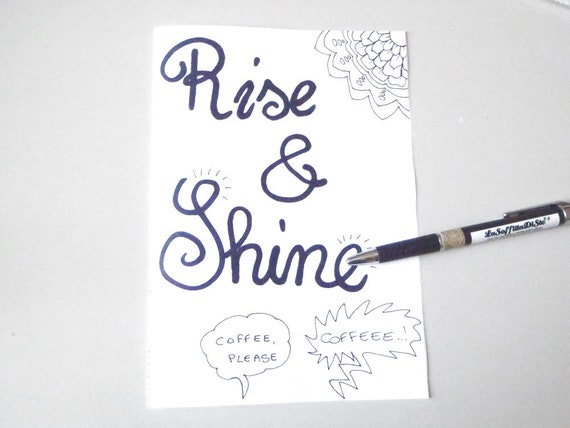 Rise
&
Shine
COFFEE,
PLEASE
COFFEEE..!
LaSoffittaDiSte